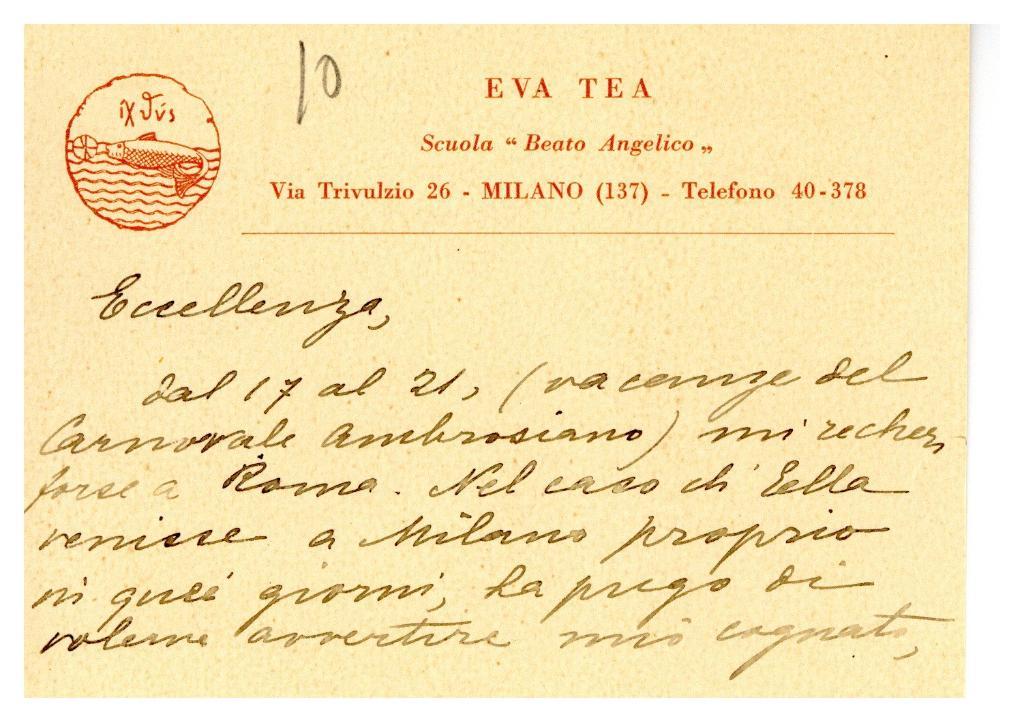 ἰχθύs
10
EVA TEA
Scuola “ Beato Angelico „
Via Trivulzio 26 - MILANO (137) - Telefono 40-378
Eccellenza,
dal 17 al 21, (vacanze del
Carnovale Ambrosiano) mi recherò
forse a Roma. Nel caso ch' Ella
venisse a Milano proprio
in quei giorni, La prego di
volerne avvertire mio cognato,